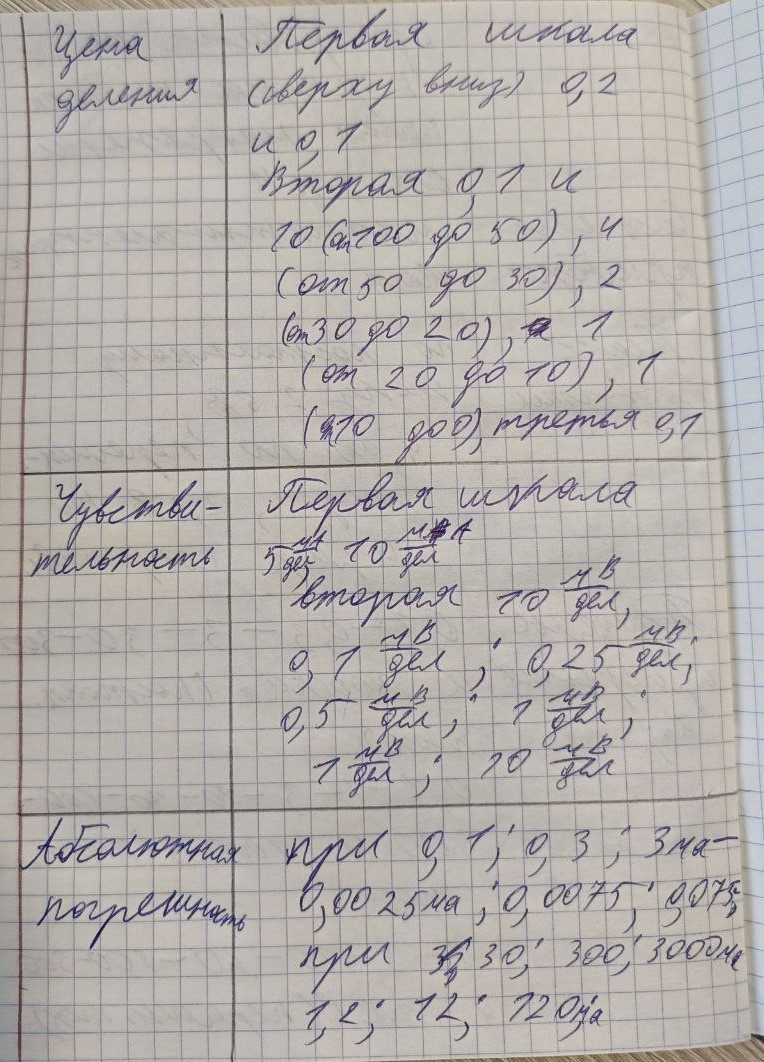 Цена
деления
Первая шкала
(сверху вниз) 0,2
и 0,1
Вторая 0,1 и
10 (от 100 до 50), 4
(от 50 до 30), 2
(от 30 до 20), 1
(от 20 до 10), 1
(от 10 до 0), третья 0,1
Чувстви-
тельность
Первая шкала
5 мА/дел, 10 мА/дел
вторая 10 мВ/дел,
0,1 мВ/дел ; 0,25 мВ/дел;
0,5 мВ/дел; 1 мВ/дел;
1 мВ/дел; 10 мВ/дел
Абсолютная
погрешность
при 0,1; 0,3; 3ма-
0,0025ма; 0,0075; 0,075;
при 30; 300; 3000ма
1,2; 12; 120ма